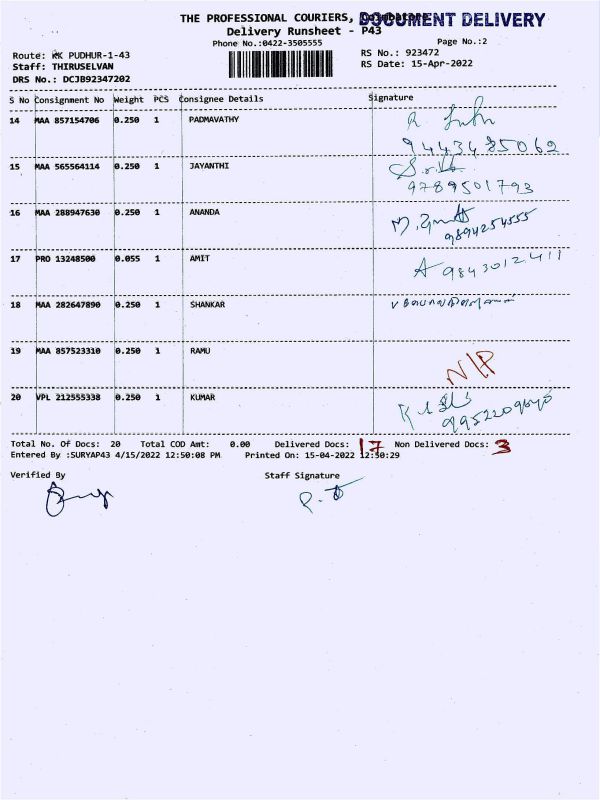 THE PROFESSIONAL COURIERS, Coimbatore
DOCUMENT DELIVERY
Delivery Runsheet - P43
Phone No.:0422-3505555
Page No.:2
Route: KK PUDHUR-1-43
RS No.: 923472
Staff: THIRUSELVAN
RS Date: 15-Apr-2022
DRS No.: DCJB92347202
S No Consignment No Weight PCS Consignee Details Signature
14 MAA 857154706 0.250 1 PADMAVATHY
9443485062
15 MAA 565564114 0.250 1 JAYANTHI
9789501793
16 MAA 288947630 0.250 1 ANANDA
9894254555
17 PRO 13248500 0.055 1 AMIT A 9843012411
18 MAA 282647890 0.250 1 SHANKAR
19 MAA 857523310 0.250 1 RAMU
N/P
20 VPL 212555338 0.250 1 KUMAR
Total No. Of Docs: 20 Total COD Amt: 0.00 Delivered Docs: 17 Non Delivered Docs: 3
Entered By :SURYAP43 4/15/2022 12:50:08 PM Printed On: 15-04-2022 12:50:29
Verified By Staff Signature